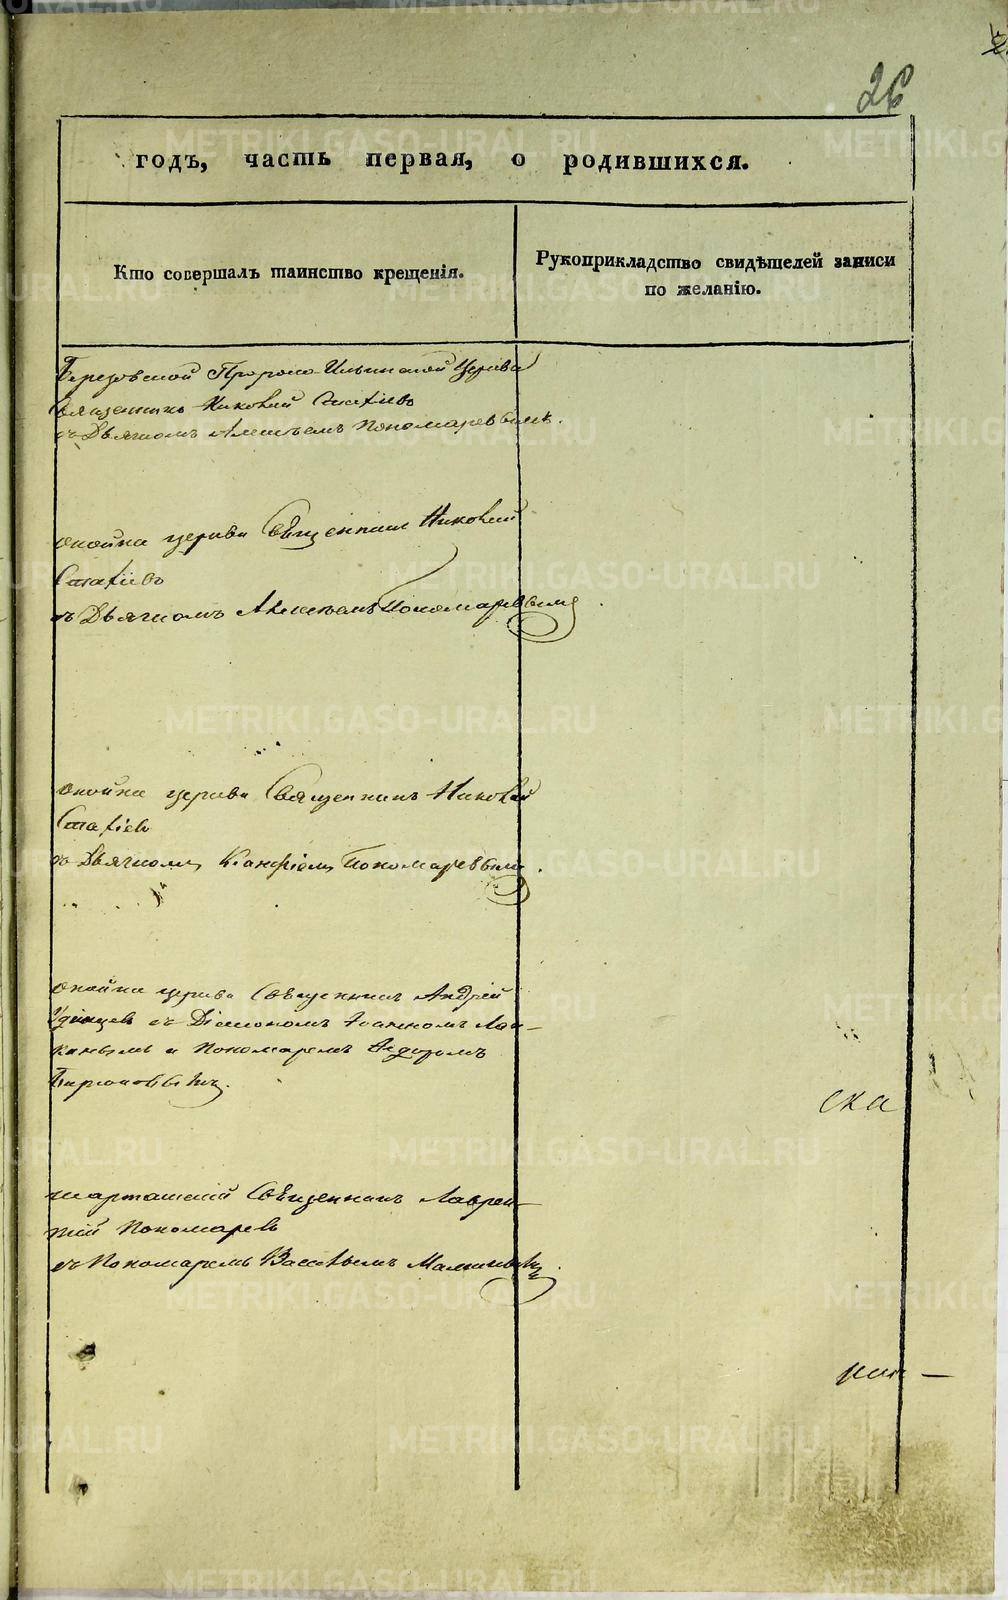 26
годъ, часть первая, о родившихся.
Кто совершалъ таинство крещенія.
Рукоприкладство свидѣтелей записи
по желанію.
Березовской Пророко-Ильинской Церкви
Священникъ Николай Статіевъ
съ Дьячкомъ Алексѣемъ Пономаревымъ.
оной же церкви Священникъ Николай
Статіевъ
съ Дьячкомъ Алексѣемъ Пономаревымъ
оной же церкви Священникъ Николай
Статіевъ
съ Дьячкомъ Пономаревымъ.
оной же церкви Священникъ Андрей
Удинцевъ съ Діакономъ Іоанномъ
и Пономаремъ Ѳедоромъ
Шарташскій Священникъ Лаврен-
тій Пономаревъ
съ Пономаремъ Васильемъ
ска
METRIKI.GASO-URAL.RU